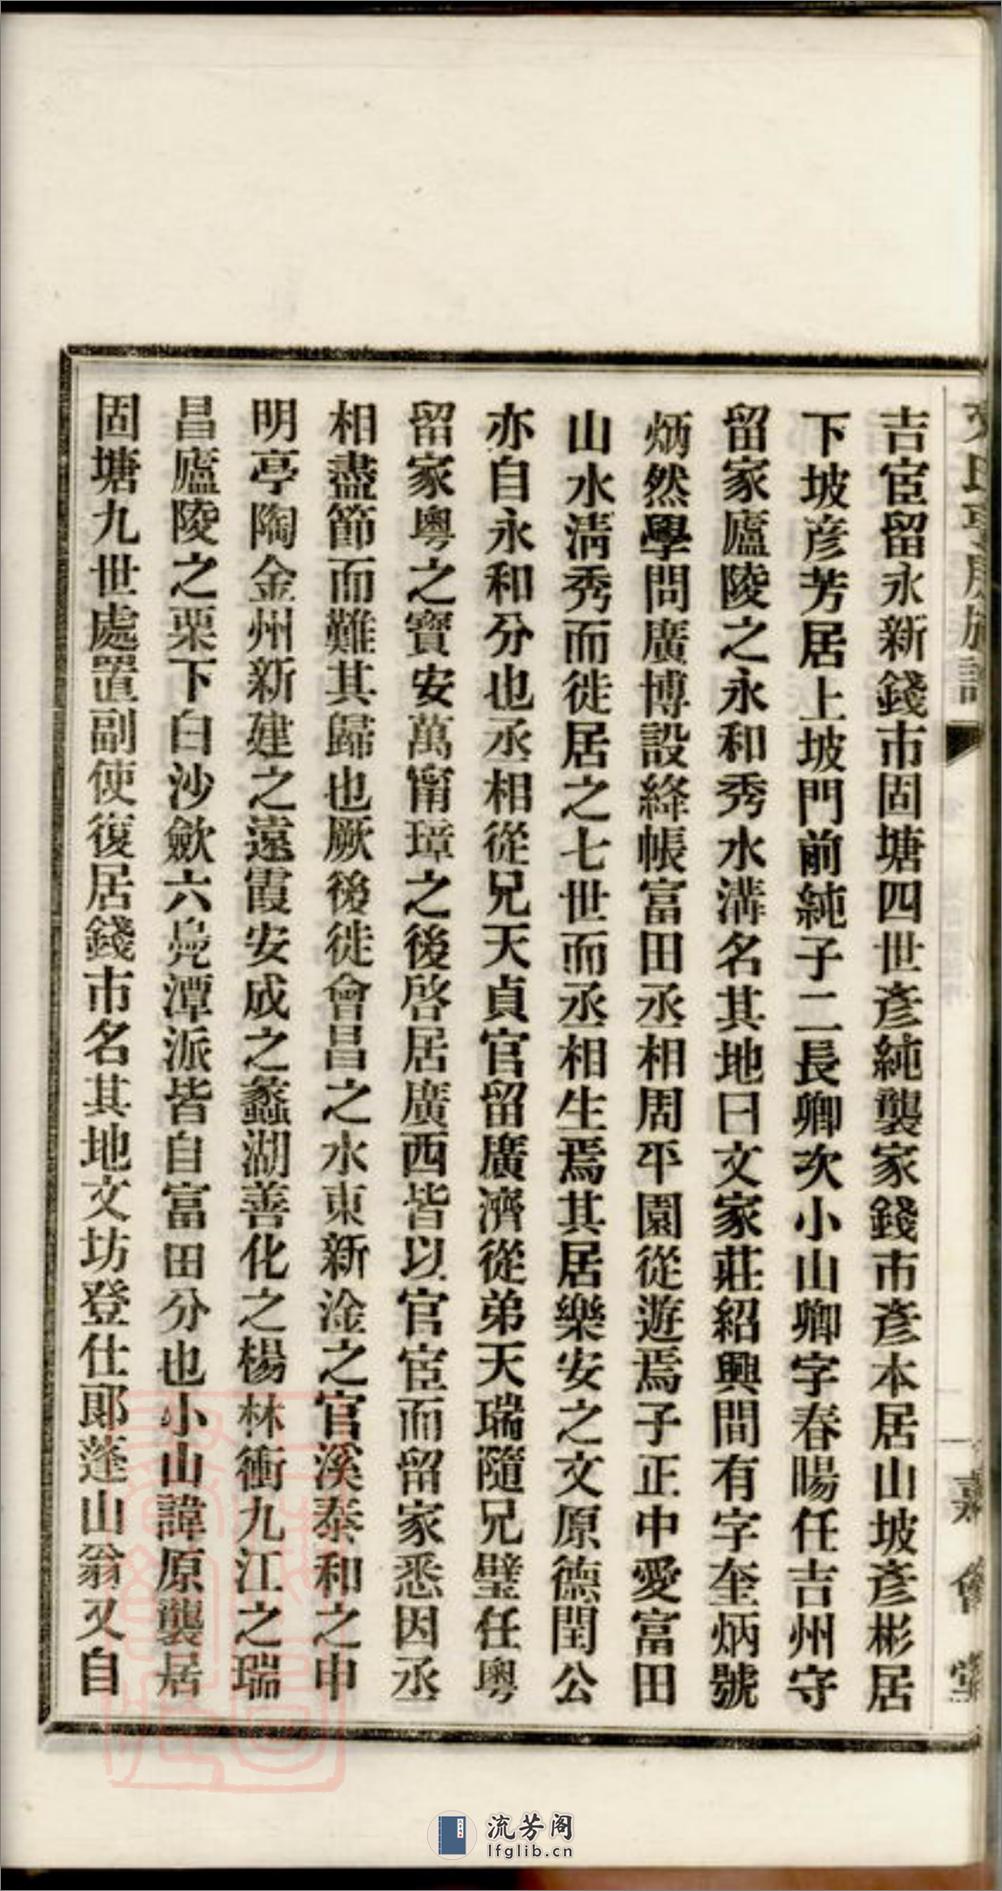 吉宦留永新錢市固塘四世彥純襲家錢市彥本居山坡彥彬居
下坡彥芳居上坡門前純子二長卿次小山卿字春暘任吉州守
留家廬陵之永和秀水溝名其地曰文家莊紹興間有字奎炳號
炳然學問廣博設絳帳富田丞相周平園從遊焉子正中愛富田
山水清秀而徙居之七世而丞相生焉其居樂安之文原德閏公
亦自永和分也丞相從兄天貞官留廣濟從弟天瑞隨兄璧任粵
留家粵之寶安萬甯璋之後啓居廣西皆以官宦而留家悉因丞
相盡節而難其歸也厥後徙會昌之水東新淦之官溪泰和之申
明亭陶金州新建之遠霞安成之蠡湖善化之楊林衝九江之瑞
昌廬陵之栗下白沙歛六鳧潭派皆自富田分也小山諱原襲居
固塘九世處置副使復居錢市名其地文坊登仕郎蓬山翁又自
嘉會堂
流芳阁
lfglib.cn